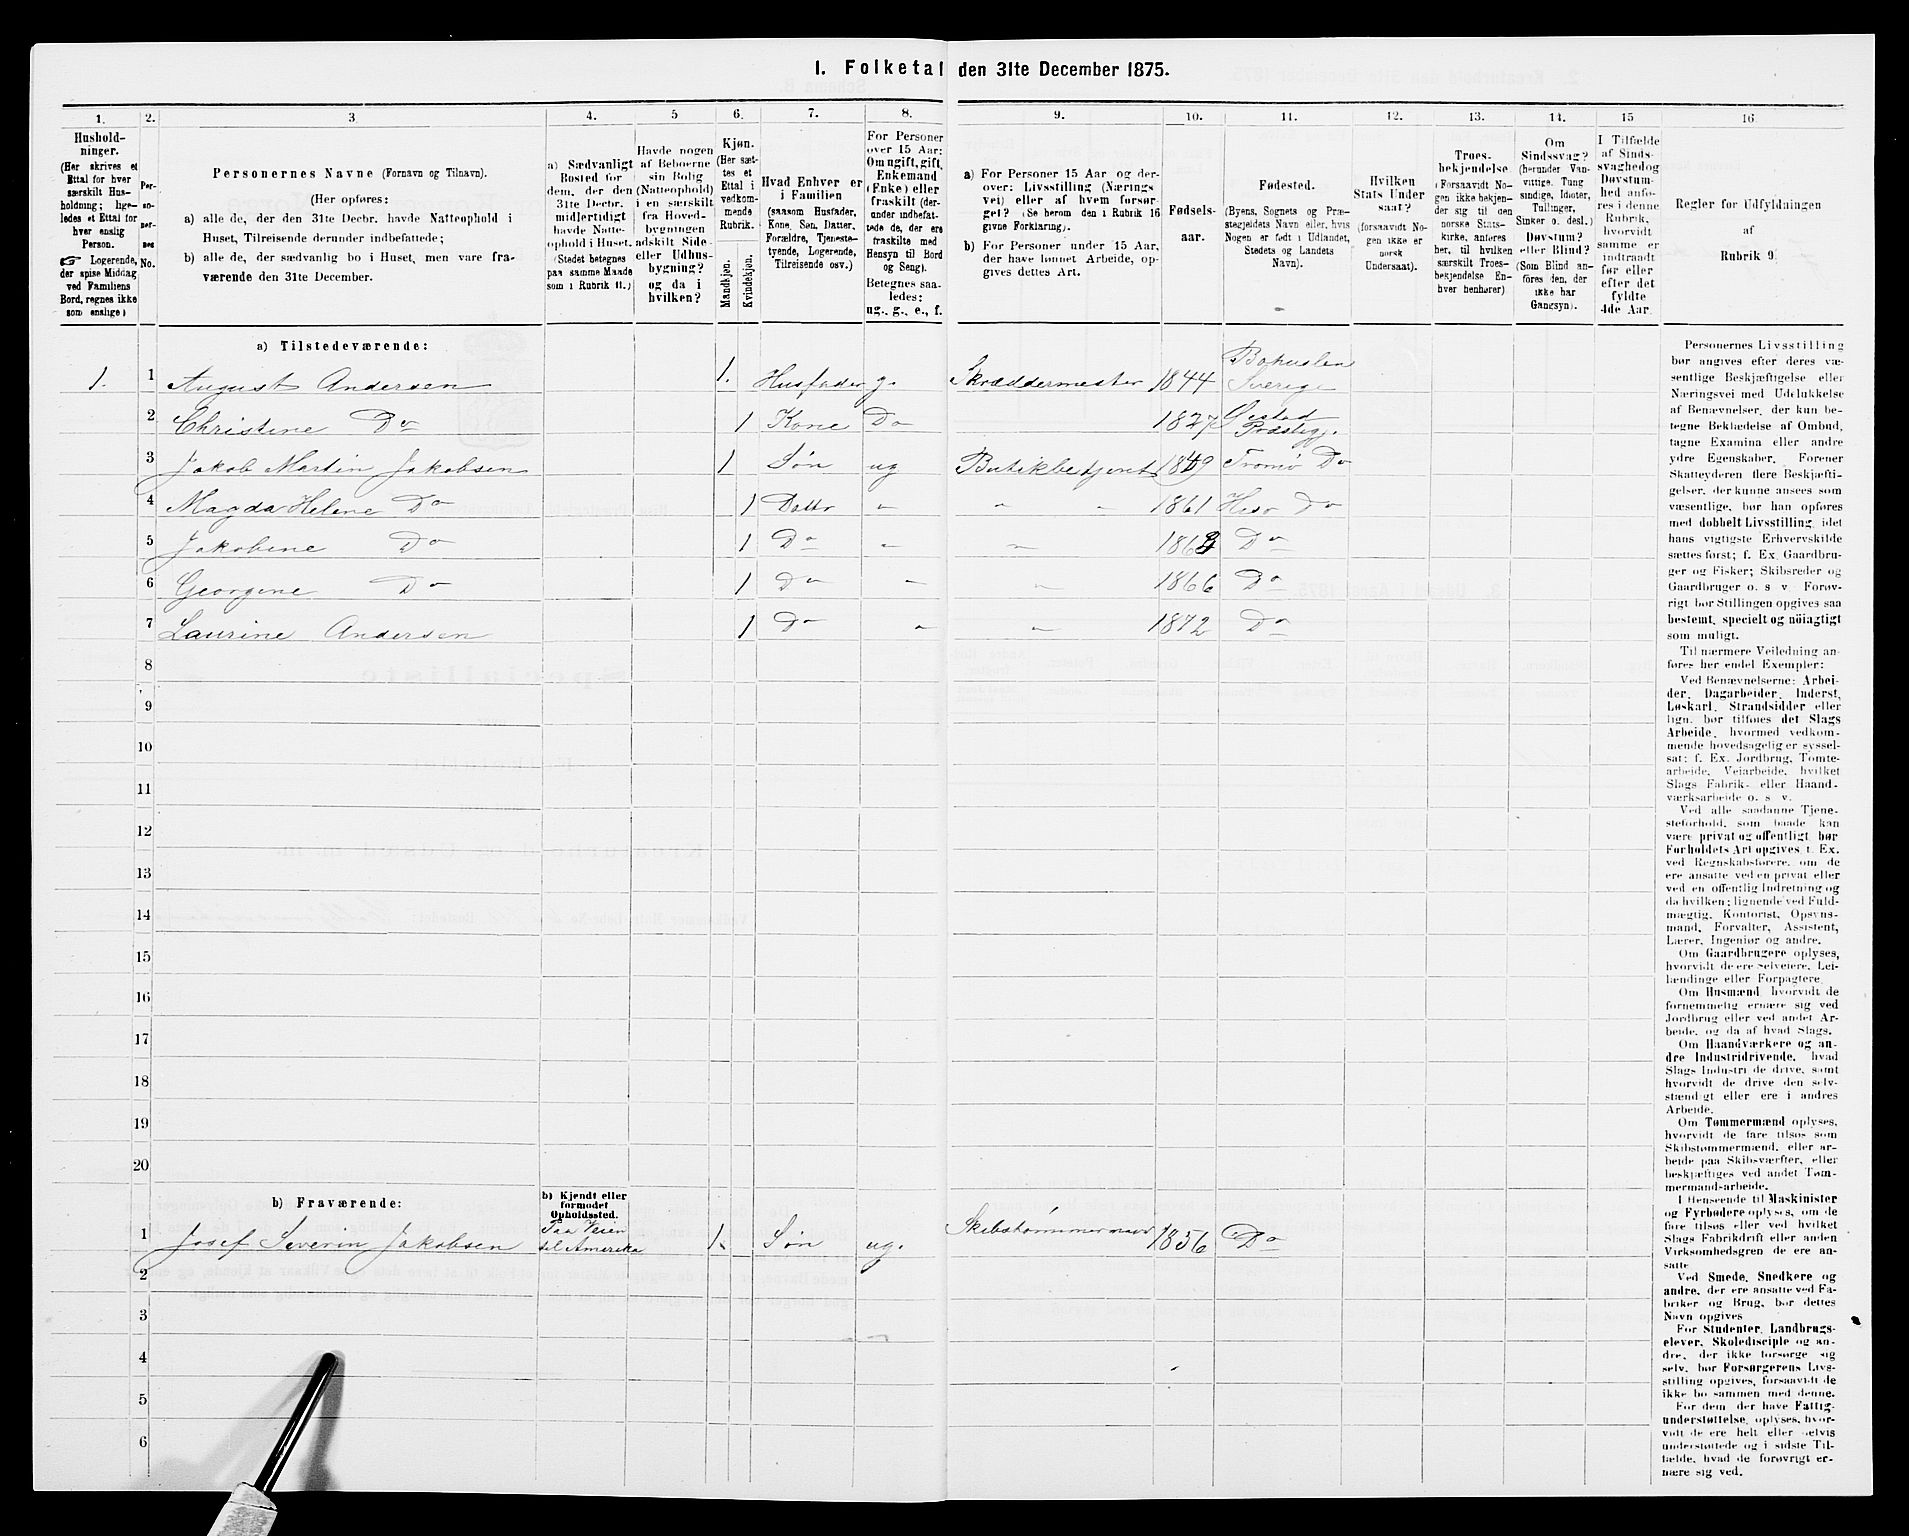 1. Folketal den 31te December 1875.
1.
Hushold-
ninger.
(Her skrives et
Ettal for hver
særskilt Hus-
holdning; lige-
ledes et Ettal for
hver enslig
Person.
Logerende,
der spise Middag
ved Familiens
Bord, regnes ikke
som enslige)
2.
Per-
so-
ner-
nes
No.
3
Personernes Navne (Fornavn og Tilnavn).
(Her opføres:
a) alle de, der den 31te Decbr. havde Natteophold i
Huset, Tilreisende derunder indbefattede;
b) alle de, der sædvanlig bo i Huset, men vare fra-
værende den 31te December.
4.
a) Sædvanligt
Bosted for
dem, der den
31te Decbr.
midlertidigt
havde Natte-
ophold i Huset.
(Stedet betegnes
paa samme Maade
som i Rubrik 11.)
5
Havde nogen
af Beboerne
sin Bolig
(Natteophold)
i en særskilt
fra Hoved-
bygningen
adskilt Side-
eller Udhus-
bygning?
og da i
hvilken?
6.
Kjøn.
(Her sæt-
tes et
Ettal i
vedkom-
mende
Rubrik.
Mandkjøn.
Kvindekjøn.
7.
Hvad Enhver er
i Familien
(saasom Husfader,
Kone, Søn, Datter,
Forældre, Tjeneste-
tyende, Logerende,
Tilreisende osv.)
8.
For Personer
over 15 Aar:
Om ugift, gift,
Enkemand
(Enke) eller
fraskilt (der-
under indbefat-
tede de, der ere
fraskilte med
Hensyn til Bord
og Seng).
Betegnes saa-
ledes:
ug., g., e., f.
9.
a) For Personer 15 Aar og der-
over: Livsstilling (Nærings
vei) eller af hvem forsør-
get? (Se herom den i Rubrik 16
givne Forklaring).
b) For Personer under 15 Aar,
der have lønnet Arbeide, op-
gives dettes Art.
10.
Fødsels-
aar.
11.
Fødested.
(Byens, Sognets og Præ-
stegjeldets Navn eller, hvis
Nogen er født i Udlandet,
Stedets og Landets
Navn).
12.
Hvilken
Stats Under
saat?
(forsaavidt No-
gen ikke er
norsk
Undersaat).
13.
Troes-
bekjendelse
(Forsaavidt No-
gen ikke bekjen-
der sig til den
norske Stats-
kirke, anføres
her, til hvilken
særskilt Troes-
bekjendelse En-
hver henhører)
14.
Om
Sindssvag?
(herunder Van-
vittige, Tung
sindige, Idioter,
Tullinger,
Sinker o. desl.)
Døvstum?
eller Blind?
(Som Blind an-
føres den, der
ikke har
Gangsyn).
15
I Tilfælde
af Sinds-
svaghed og
Døvstum-
hed anfø-
res i denne
Rubrik,
hvorvidt
samme er
indtraadt
før eller
efter det
fyldte
4de Aar.
16.
Regler for Udfyldningen
af
Rubrik 9.
a) Tilstedeværende:
1. 1 August Andersen 1. Husfader g. Skræddermester 1844 Bohuslen
Sverige
2 Christine Do 1 Kone Do 1827 Øiestad
Præstegj.
3 Jakob Martin Jakobsen 1 Søn ug Butikbetjent 1849 Tromø Do
4 Magda Helene Do 1 Datter " " " 1861 Hisø Do
5 Jakobine Do 1 Do " " 1863 Do
6 Georgine Do 1 Do " " 1866 Do
7 Laurine Andersen 1 Do " " 1872 Do
8
9
10
11
12
13
14
15
16
17
18
19
20
b) Fraværende:
b) Kjendt eller
formodet
Opholdssted.
1 Josef Severin Jakobsen Paa Veien
til Amerika 1. Søn ug. Skibstømmermand 1856 Do
2
3
4
5
6
Personernes Livsstilling
bør angives efter deres væ-
sentlige Beskjæftigelse eller
Næringsvei med Udelukkelse
af Benævnelser, der kun be-
tegne Beklædelse af Ombud,
tagne Examina eller andre
ydre Egenskaber. Forener
Skatteyderen flere Beskjæfti-
gelser, der kunne ansees som
væsentlige, bør han opføres
med dobbelt Livsstilling, idet
hans vigtigste Erhvervskilde
sættes først; f. Ex. Gaardbru-
ger og Fisker; Skibsreder og
Gaardbruger o. s. v. Forøv-
rigt bør Stillingen opgives saa
bestemt, specielt og nöiagtigt
som muligt.
Til nærmere Veiledning an-
føres her endel Exempler:
Ved Benævnelserne: Arbei-
der, Dagarbeider, Inderst,
Løskarl, Strandsidder eller
lign. bør tilføies det Slags
Arbeide, hvormed vedkom-
mende hovedsagelig er syssel-
sat; f. Ex. Jordbrug, Tomte-
arbeide, Veiarbeide, hvilket
Slags Fabrik- eller Haand-
værksarbeide o. s. v.
Ved alle saadanne Tjene-
steforhold, som baade kan
være privat og offentligt, bør
Forholdets Art opgives, f. Ex.
ved Regnskabsførere, om de
ere ansatte ved en privat eller
ved en offentlig Indretning og
da hvilken; lignende ved Fuld-
mægtig, Kontorist, Opsyns-
mand, Forvalter, Assistent,
Lærer, Ingeniør og andre.
Om Gaardbrugere oplyses,
hvorvidt de ere Selveiere, Lei-
lændinge eller Forpagtere.
Om Husmænd, hvorvidt de
fornemmelig ernære sig ved
Jordbrug eller ved andet Ar-
beide, og da af hvad Slags.
Om Haandværkere og an-
dre Industridrivende, hvad
Slags Industri de drive, samt
hvorvidt de drive den selv-
stændigt eller ere i andres
Arbeide.
Om Tømmermænd oplyses,
hvorvidt de fare tilsøs som
Skibstømmermænd, eller ar-
beide paa Skibsværfter, eller
beskjæftiges ved andet Tøm-
mermand-arbeide.
I Henseende til Maskinister
og Fyrbødere oplyses, om de
fare tilsøs eller ved hvilket
Slags Fabrikdrift eller anden
Virksomhedsgren de ere an-
satte
Ved Smede, Snedkere og
andre, der ere ansatte ved Fa-
briker og Brug, bør dettes
Navn opgives
For Studenter, Landbrugs-
elever, Skoledisciple og an-
dre, der ikke forsørge sig
selv, bør Forsørgerens Livs-
stilling opgives, forsaavidt de
ikke bo sammen med denne.
For dem, der have Fattig-
understøttelse, oplyses, hvor-
vidt de ere helt eller delvis
understøttede og i sidste Til-
fælde, hvad de forøvrigt er-
nære sig ved.